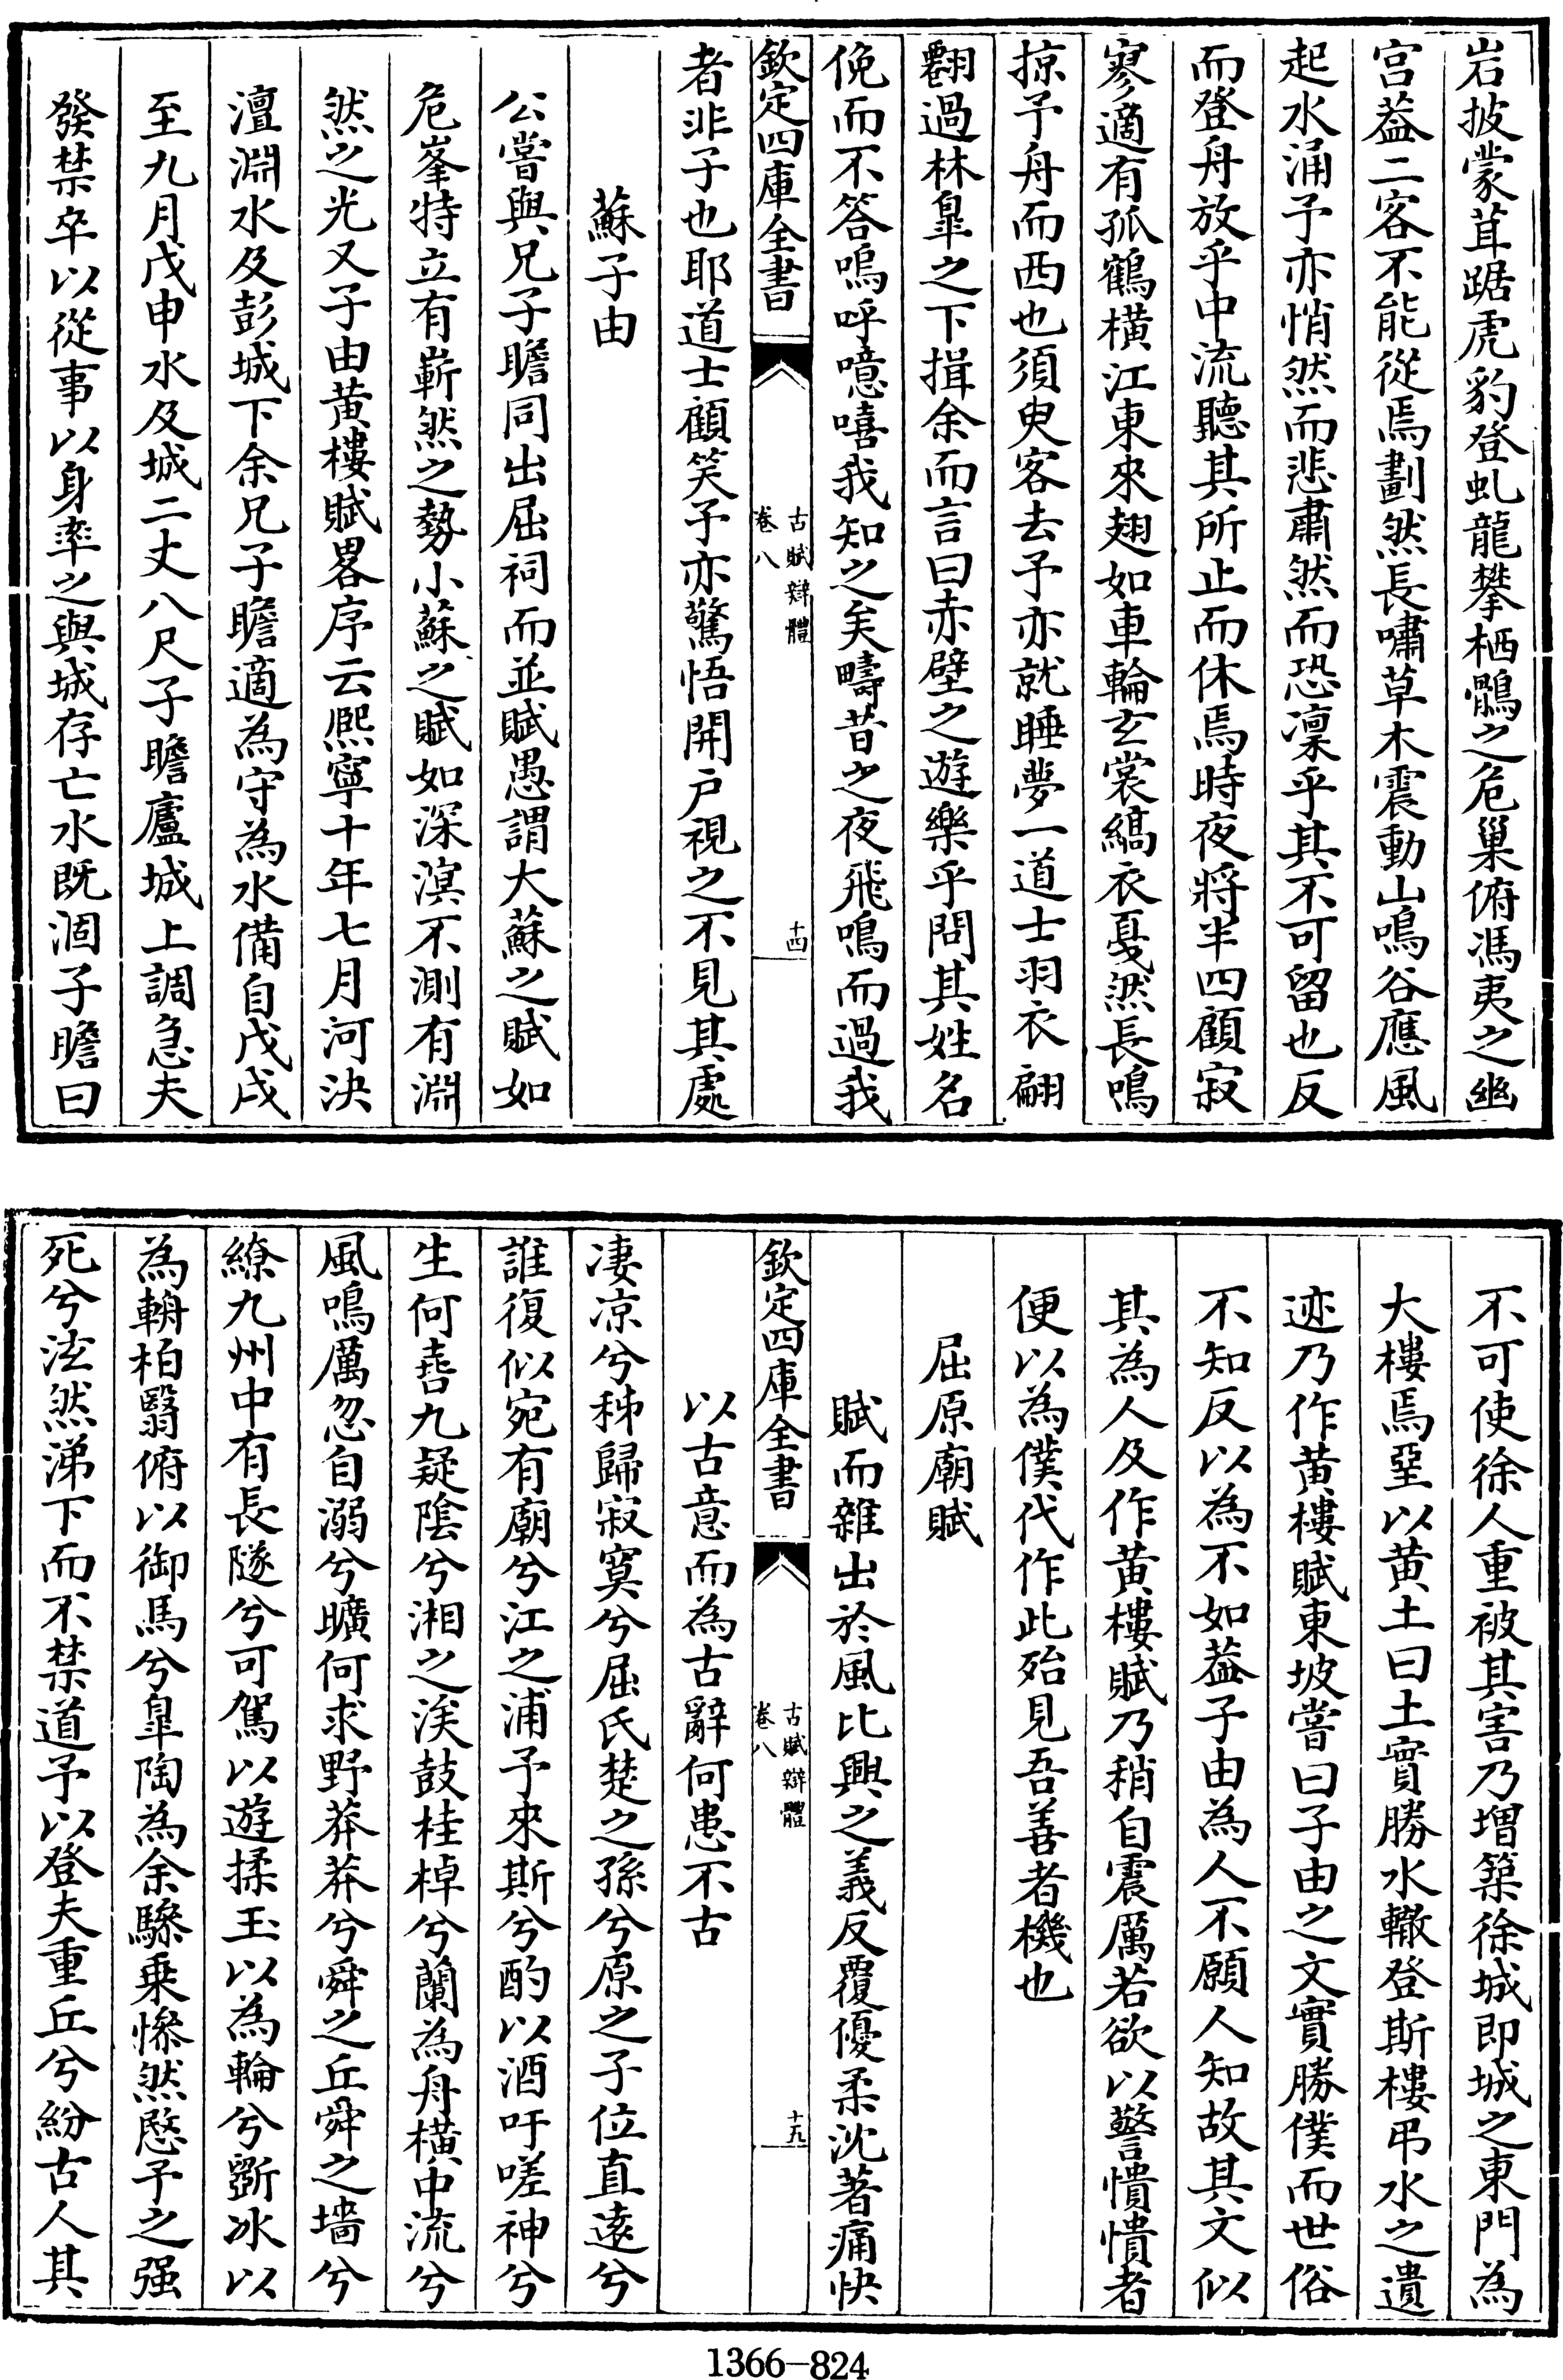 岩披蒙茸踞虎豹登虬龍攀栖鶻之危巢俯馮夷之幽
宫葢二客不能從焉劃然長嘯草木震動山鳴谷應風
起水涌予亦悄然而悲肅然而恐凜乎其不可留也反
而登舟放乎中流聽其所止而休焉時夜將半四顧寂
寥適有孤鶴橫江東來翅如車輪玄裳縞衣戞然長鳴
掠予舟而西也須臾客去予亦就睡夢一道士羽衣翩
翻過林臯之下揖余而言曰赤壁之遊樂乎問其姓名
俛而不答嗚呼噫嘻我知之矣疇昔之夜飛鳴而過我
欽定四庫全書
古賦辯體
卷八
十四
者非子也耶道士顧笑予亦驚悟開戸視之不見其處
蘇子由
公嘗與兄子瞻同出屈祠而並賦愚謂大蘇之賦如
危峯特立有嶄然之勢小蘇之賦如深溟不測有淵
然之光又子由黄樓賦畧序云熈寧十年七月河決
澶淵水及彭城下余兄子瞻適為守為水備自戊戌
至九月戊申水及城二丈八尺子瞻廬城上調急夫
發禁卒以從事以身率之與城存亡水既涸子瞻曰
不可使徐人重被其害乃增築徐城即城之東門為
大樓焉堊以黄土曰土實勝水轍登斯樓弔水之遺
迹乃作黄樓賦東坡嘗曰子由之文實勝僕而世俗
不知反以為不如葢子由為人不願人知故其文似
其為人及作黄樓賦乃稍自震厲若欲以警憒憒者
便以為僕代作此殆見吾善者機也
屈原廟賦
賦而雜出於風比興之義反覆優柔沈著痛快
欽定四庫全書
古賦辯體
卷八
十五
以古意而為古辭何患不古
凄凉兮秭歸寂寞兮屈氏楚之孫兮原之子位直逺兮
誰復似宛有廟兮江之浦予來斯兮酌以酒吁嗟神兮
生何喜九疑陰兮湘之涘鼓桂棹兮蘭為舟橫中流兮
風鳴厲忽自溺兮曠何求野莽莽兮舜之丘舜之墻兮
繚九州中有長隧兮可駕以遊揉玉以為輪兮斵冰以
為輈柏翳俯以御馬兮臯陶為余驂乗慘然愍予之强
死兮泫然涕下而不禁道予以登夫重丘兮紛古人其
1366—824